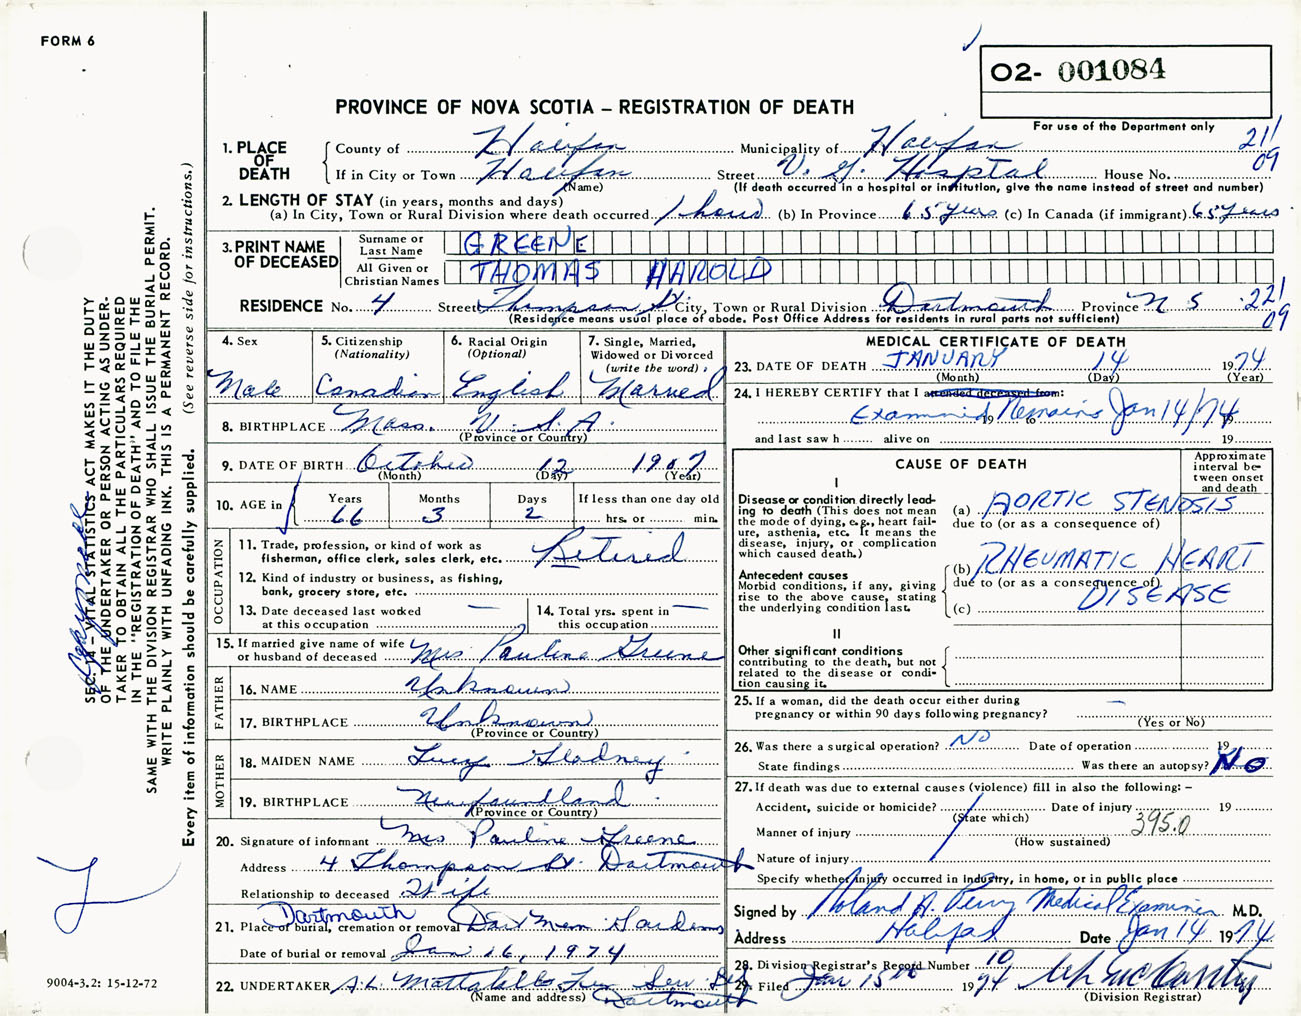 FORM 6
O2- 001084
PROVINCE OF NOVA SCOTIA – REGISTRATION OF DEATH
For use of the Department only
1. PLACE OF DEATH
County of Halifax Municipality of Halifax 211
If in City or Town Halifax Street V. G. Hospital House No. 09
(Name) (If death occurred in a hospital or institution, give the name instead of street and number)
2. LENGTH OF STAY (in years, months and days)
(a) In City, Town or Rural Division where death occurred 1 hour (b) In Province 65 years (c) In Canada (if immigrant) 65 years
3. PRINT NAME OF DECEASED
Surname or Last Name GREENE
All Given or Christian Names THOMAS HAROLD
RESIDENCE No. 4 Street Thompson St. City, Town or Rural Division Dartmouth Province N S 221
(Residence means usual place of abode. Post Office Address for residents in rural parts not sufficient) 09
4. Sex
Male
5. Citizenship
(Nationality)
Canadian
6. Racial Origin
(Optional)
English
7. Single, Married,
Widowed or Divorced
(write the word)
Married
8. BIRTHPLACE Mass. U. S. A.
(Province or Country)
9. DATE OF BIRTH October 12 1907
(Month) (Day) (Year)
10. AGE in
Years Months Days If less than one day old
66 3 2 hrs. or min.
OCCUPATION
11. Trade, profession, or kind of work as
fisherman, office clerk, sales clerk, etc. Retired
12. Kind of industry or business, as fishing,
bank, grocery store, etc.
13. Date deceased last worked
at this occupation —
14. Total yrs. spent in
this occupation —
15. If married give name of wife
or husband of deceased Mrs Pauline Greene
FATHER
16. NAME Unknown
17. BIRTHPLACE Unknown
(Province or Country)
MOTHER
18. MAIDEN NAME Lucy Gladney
19. BIRTHPLACE Newfoundland
(Province or Country)
20. Signature of informant Mrs Pauline Greene
Address 4 Thompson St. Dartmouth
Relationship to deceased Wife
Dartmouth
21. Place of burial, cremation or removal Dart Mem Gardens
Date of burial or removal Jan 16, 1974
22. UNDERTAKER A.L. Mattatall Fun Ser
(Name and address) Dartmouth
MEDICAL CERTIFICATE OF DEATH
23. DATE OF DEATH JANUARY 14 1974
(Month) (Day) (Year)
24. I HEREBY CERTIFY that I attended deceased from:
Examined Remains Jan 14/74
19 to 19
and last saw h alive on 19
CAUSE OF DEATH
Approximate interval between onset and death
I
Disease or condition directly leading to death (This does not mean the mode of dying, e.g., heart failure, asthenia, etc. It means the disease, injury, or complication which caused death.)
(a) AORTIC STENOSIS
due to (or as a consequence of)
Antecedent causes
Morbid conditions, if any, giving rise to the above cause, stating the underlying condition last.
(b) RHEUMATIC HEART
due to (or as a consequence of)
DISEASE
(c)
II
Other significant conditions
contributing to the death, but not related to the disease or condition causing it.
25. If a woman, did the death occur either during
pregnancy or within 90 days following pregnancy? —
(Yes or No)
26. Was there a surgical operation? NO Date of operation 19
State findings Was there an autopsy? NO
27. If death was due to external causes (violence) fill in also the following: –
Accident, suicide or homicide? Date of injury 19
(State which) 395.0
Manner of injury
(How sustained)
Nature of injury
Specify whether injury occurred in industry, in home, or in public place
Signed by Roland A. Perry Medical Examiner M.D.
Address Halifax Date Jan 14 1974
28. Division Registrar's Record Number 10
29. Filed Jan 15th 1974
(Division Registrar)
SEC. 14 – VITAL STATISTICS ACT MAKES IT THE DUTY
OF THE UNDERTAKER OR PERSON ACTING AS UNDER-
TAKER TO OBTAIN ALL THE PARTICULARS REQUIRED
IN THE "REGISTRATION OF DEATH" AND TO FILE THE
SAME WITH THE DIVISION REGISTRAR WHO SHALL ISSUE THE BURIAL PERMIT.
WRITE PLAINLY WITH UNFADING INK. THIS IS A PERMANENT RECORD.
Every item of information should be carefully supplied. (See reverse side for instructions.)
9004-3.2: 15-12-72